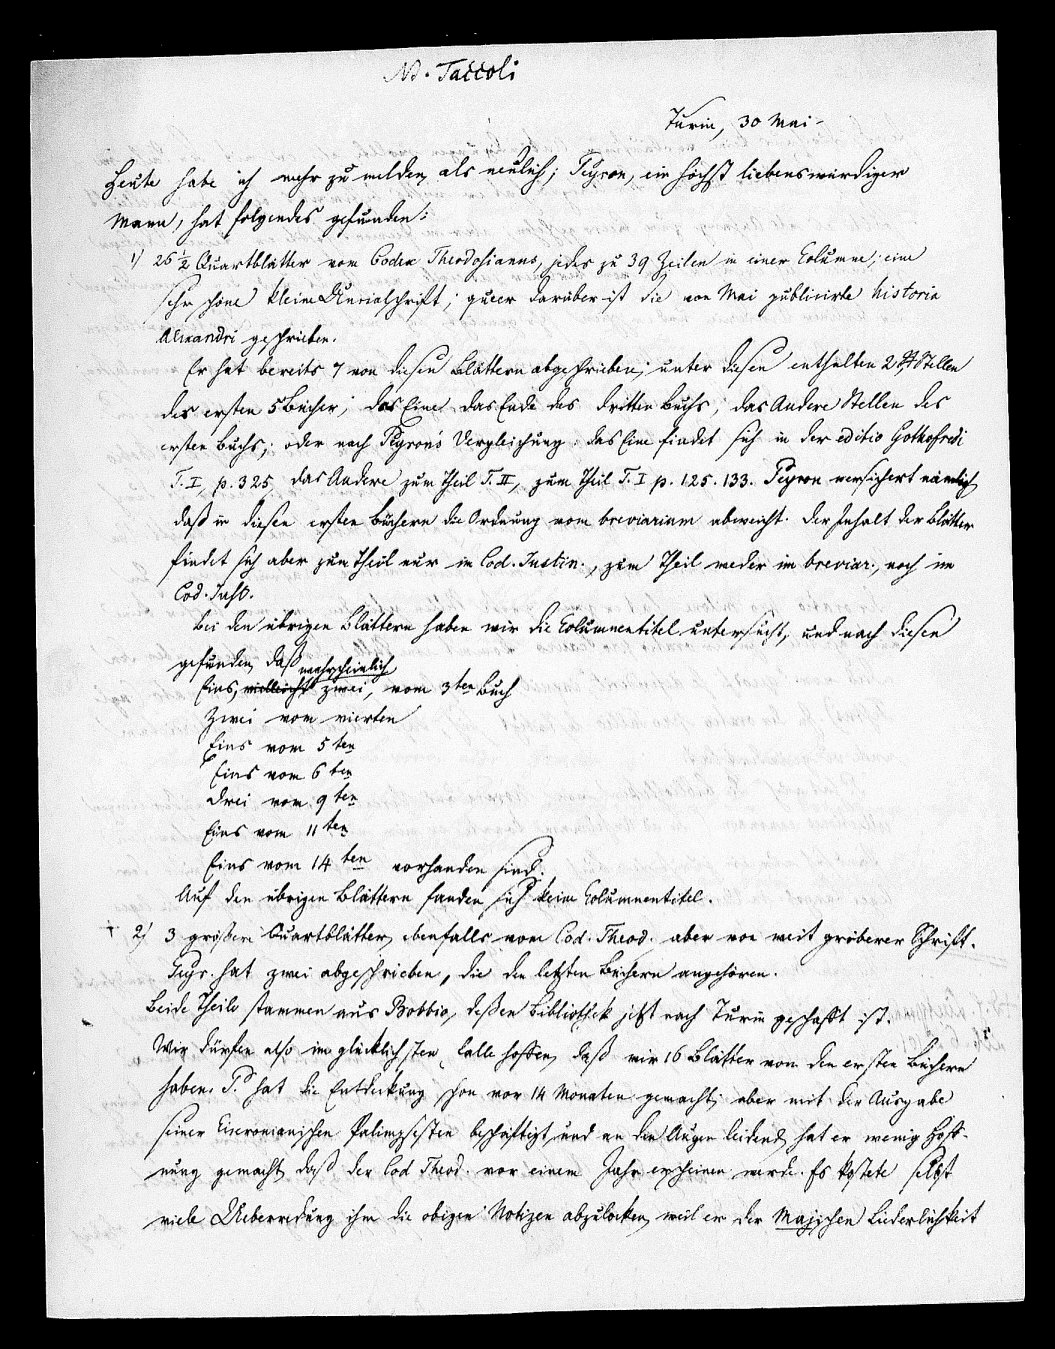 NB. Taccoli
Turin, 30 Mai –
Heute habe ich mehr zu melden als neulich; Peyron, ein höchst liebenswürdiger
Mann, hat folgendes gefunden:
1) 26 1/2 Quartblätter vom Codex Theodosianus, jedes zu 39 Zeilen in einer Columne; eine
sehr schöne kleine Uncialschrift; queer darüber ist die von Mai publicirte historia
Alexandri geschrieben.
Er hat bereits 7 von diesen Blättern abgeschrieben; unter diesen enthalten 2 Stellen
der ersten 5 Bücher; das Eine das Ende des dritten Buchs, das Andere Stellen des
ersten Buchs; oder nach Peyron's Vergleichung: das Eine findet sich in der editio Gothofredi
T. I, p. 325, das Andere zum Theil T. II, zum Theil T. I p. 125. 133. Peyron versichert nämlich
daß in diesen ersten Büchern die Ordnung vom breviarium abweicht. Der Inhalt der Blätter
findet sich aber zum Theil nur im Cod. Justin., zum Theil weder im breviar., noch im
Cod. Just.
Bei den übrigen Blättern haben wir die Columnentitel untersucht, und nach diesen
gefunden, daß
wahrscheinlich
Eins, vielleicht zwei, vom 3ten Buch
Zwei vom vierten
Eins vom 5ten
Eins vom 6ten
Drei vom 9ten
Eins vom 11ten
Eins vom 14ten vorhanden sind.
Auf den übrigen Blättern fanden sich keine Columnentitel.
† 2) 3 größere Quartblätter, ebenfalls vom Cod. Theod. aber von weit gröberer Schrift.
Peyr. hat zwei abgeschrieben, die den letzten Büchern angehören.
Beide Theile stammen aus Bobbio, deßen Bibliothek jetzt nach Turin geschafft ist.
Wir dürfen also im glücklichsten Falle hoffen, daß wir 16 Blätter von den ersten Büchern
haben. P. hat die Entdeckung schon vor 14 Monaten gemacht, aber mit der Ausgabe
seiner Ciceronianischen Palimpsesten beschäftigt, und an den Augen leidend, hat er wenig Hoff-
nung gemacht, daß der Cod Theod. vor einem Jahr erscheinen werde. Es kostete selbst
viele Ueberredung ihm die obigen Notizen abzulocken, weil er der Majischen Liederlichkeit